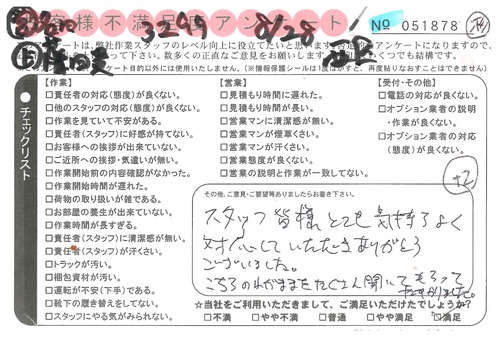 お客様不満足度アンケート
3299 8/28
No 051878
ケートは、弊社作業スタッフのレベル向上に役立てたいと思います。否定的なアンケートになりますので、
下さい。数多くの正直なご意見をお願いします。
ート目的以外には使用いたしません。(※情報保護シールは1度はがすと、再度貼りなおすことはできません)
チェックリスト
【作業】
□責任者の対応(態度)が良くない。
□他のスタッフの対応(態度)が良くない。
□作業を見ていて不安がある。
□責任者(スタッフ)に好感が持てない。
□お客様への挨拶が出来ていない。
□ご近所への挨拶・気遣いが無い。
□作業開始前の内容確認がなかった。
□作業開始時間が遅れた。
□荷物の取り扱いが雑である。
□お部屋の養生が出来ていない。
□作業時間が長すぎる。
□責任者(スタッフ)に清潔感が無い。
□責任者(スタッフ)が汗くさい。
□トラックが汚い。
□梱包資材が汚い。
□運転が不安(下手)である。
□靴下の履き替えをしてない。
□スタッフにやる気がみられない。
【営業】
□見積もり時間に遅れた。
□見積もり時間が長い。
□営業マンに清潔感が無い。
□営業マンが煙草くさい。
□営業マンが汗くさい。
□営業態度が良くない。
□営業の説明と作業が一致してない。
【受付・その他】
□電話の対応が良くない。
□オプション業者の説明
・作業が良くない。
□オプション業者の対応
(態度)が良くない。
+2
その他、ご意見・ご要望等ありましたらお書き下さい。
スタッフ皆様とても気持ちよく
対応していただきありがとう
ございました。
こちらのわがままをたくさん聞いてもらって
たすかりました。
☆当社をご利用いただきまして、ご満足いただけたでしょうか?
□不満 □やや不満 □普通 □やや満足 □満足